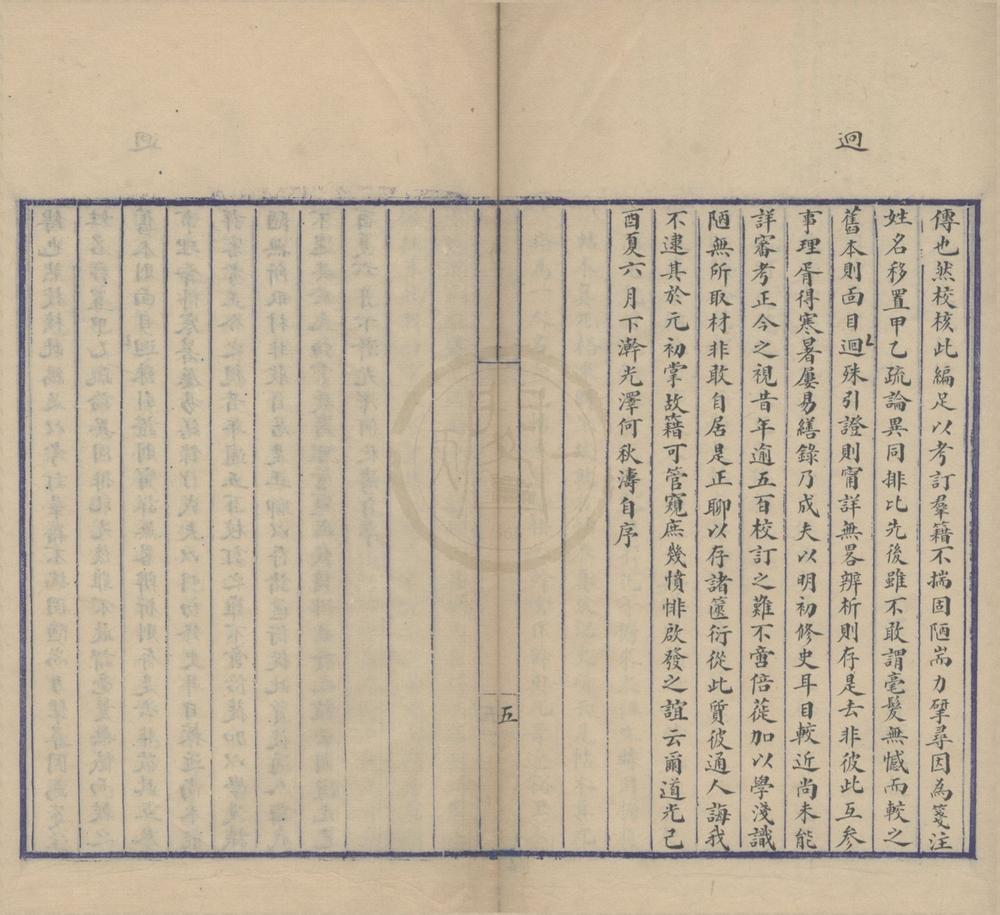 迥
傳也然校核此編足以考訂羣籍不揣固陋耑力擘尋因為箋注
姓名移置甲乙疏論異同排比先後雖不敢謂毫髮無憾而較之
舊本則面目迴殊引證則甯詳無畧辨析則存是去非彼此互參
事理胥得寒暑屢易繕錄乃成夫以明初修史耳目較近尚未能
詳審考正今之視昔年逾五百校訂之難不啻倍蓰加以學淺識
陋無所取材非敢自居是正聊以存諸篋衍從此質彼通人誨我
不逮其於元初掌故籍可管窺庶幾憤悱啟發之誼云爾道光己
酉夏六月下澣光澤何秋濤自序
五